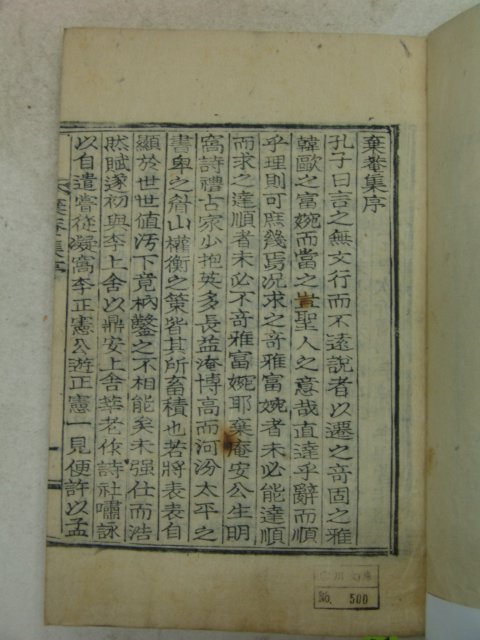 棄菴集序
孔子曰言之無文行而不遠說者以遷之奇固之雅
韓歐之富婉而當之豈聖人之意哉直達乎辭而順
乎理則可庶幾焉況求之奇雅富婉者未必能達順
而求之達順者未必不奇雅富婉耶棄庵安公生明
窩詩禮古家少抱英多長益淹博高而河汾太平之
書卑之尉山權衡之策皆其所畜積也若將表表自
顯於世世値汚下竟枘鑿之不相能矣未强仕而浩
然賦遂初與李上舍以鼎安上舍華老作詩社嘯詠
以自遣嘗從凝窩李正憲公遊正憲一見便許以孟
棄菴集序
No. 500